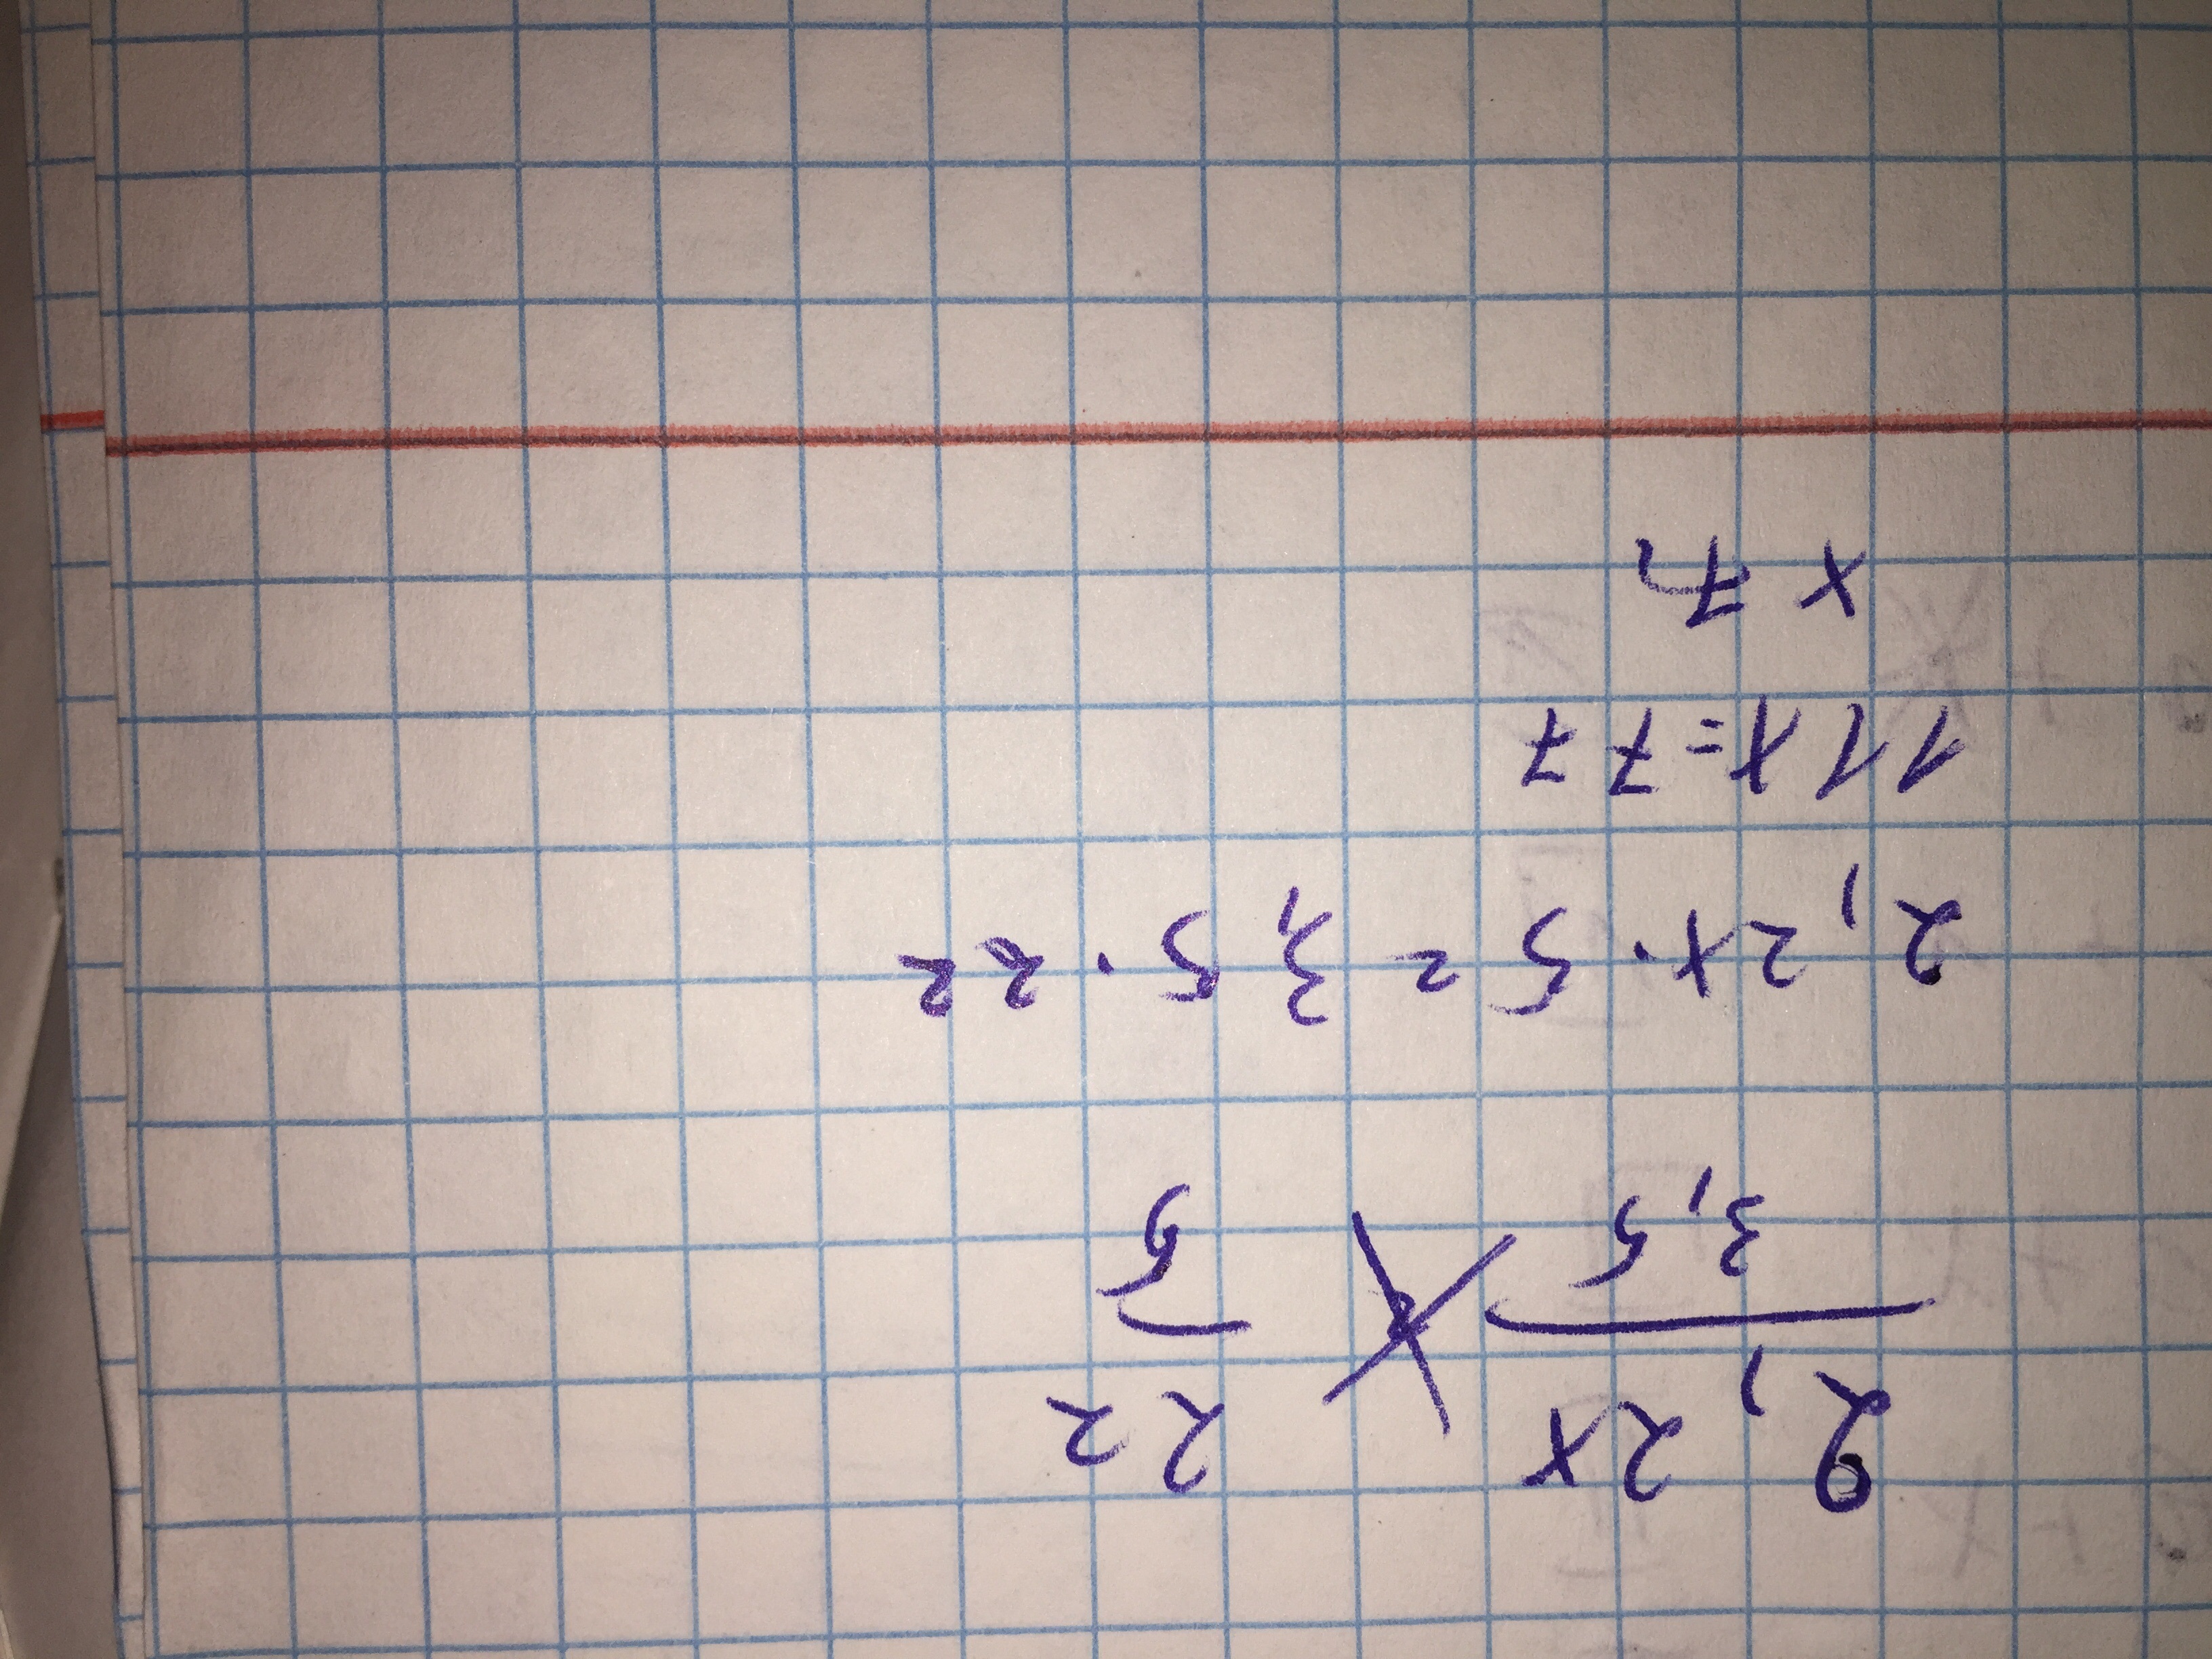 2,2x 22
3,5 5
2,2x·5=3,5·22
11x=77
x 7